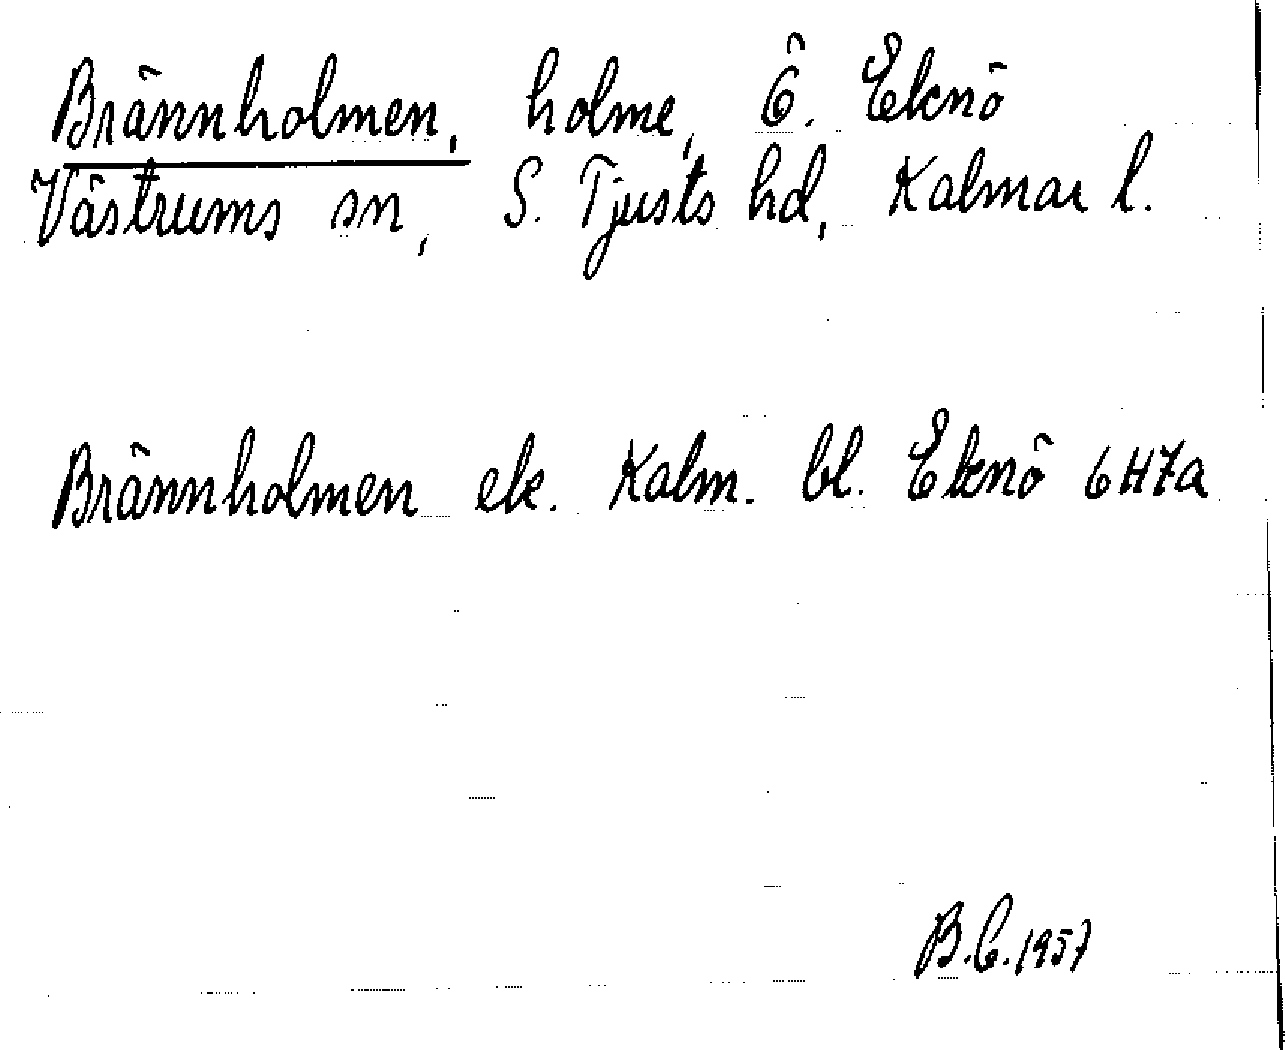 Brännholmen, holme, Ö. Eknö
Västrums sn, S. Tjusts hd, Kalmar l.
Brännholmen ek. Kalm. bl. Eknö 6H7a
B.C. 1957